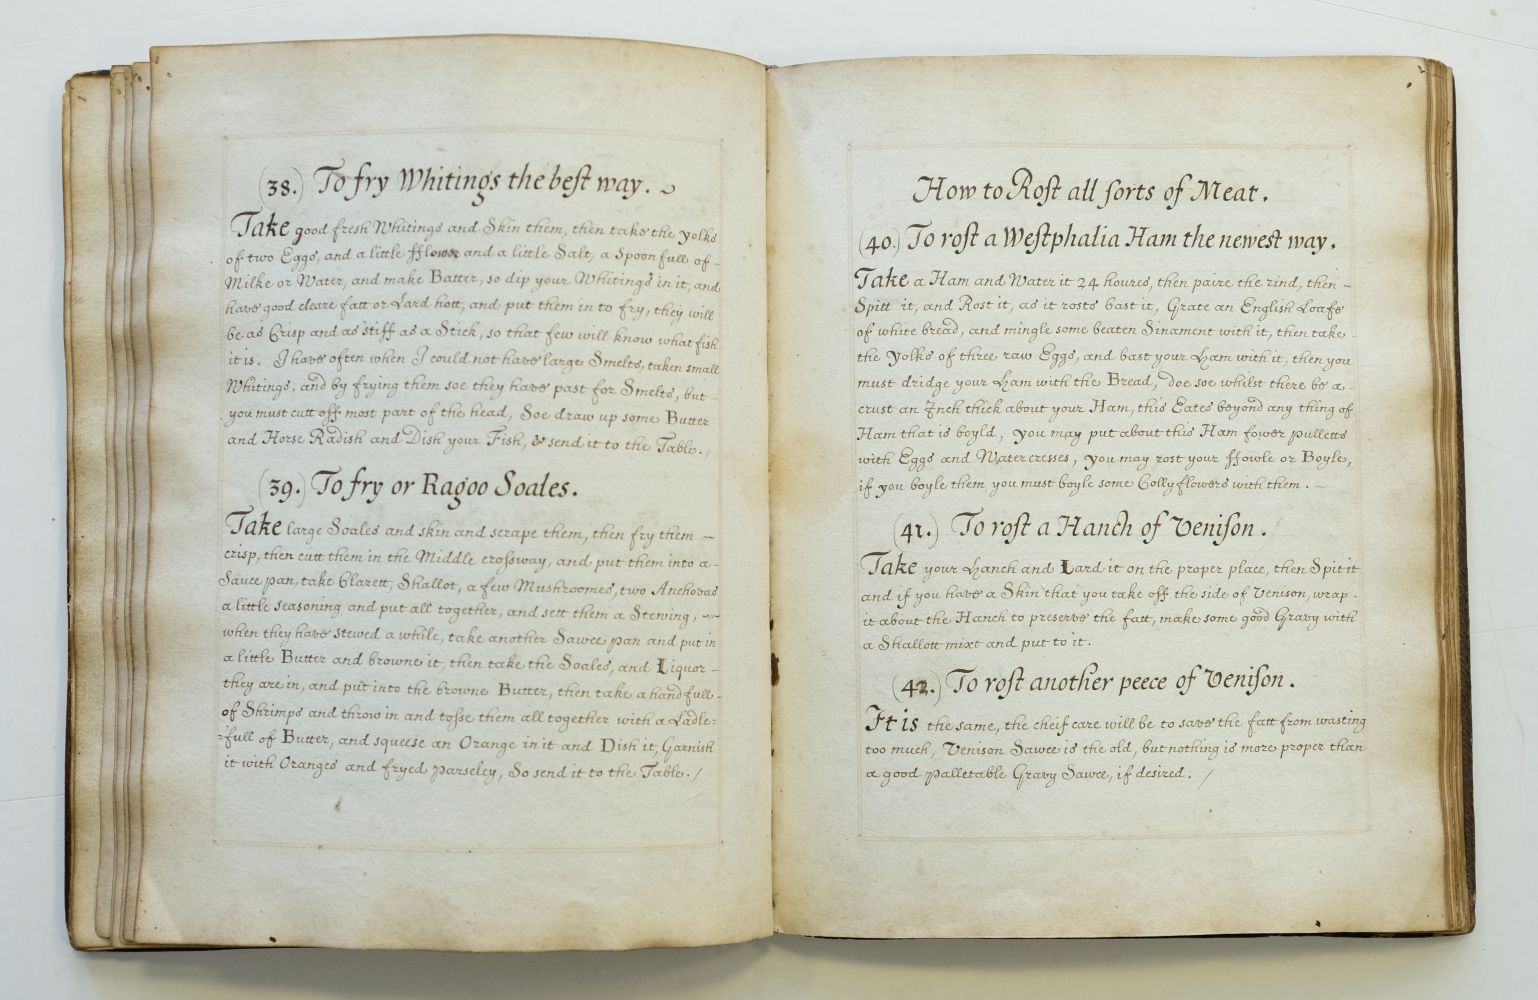 (38.) To fry Whitings the best way.
Take good fresh Whitings and Skin them, then take the yolks
of two Eggs, and a little fflower and a little Salt, a Spoon full of -
Milke or Water, and make Batter, so dip your Whitings in it, and
have good cleare fatt or Lard hott, and put them in to fry, they will
be as Crisp and as stiff as a Stick, so that few will know what fish
it is. I have often when I could not have large Smelts, taken small
Whitings, and by frying them soe they have past for Smelts, but -
you must cutt off most part of the head, Soe draw up some Butter
and Horse Radish and Dish your Fish, & send it to the Table.
(39.) To fry or Ragoo Soales.
Take large Soales and skin and scrape them, then fry them -
crisp, then cutt them in the Middle crossway, and put them into a -
Sauce pan, take Clarett, Shallot, a few Mushroomes, two Anchovas
a little seasoning and put all together, and sett them a Stewing, -
when they have stewed a while, take another Sawce pan and put in
a little Butter and browne it, then take the Soales, and Liquor -
they are in, and put into the browne Butter, then take a handfull -
of Shrimps and throw in and tosse them all together with a Ladle=
=full of Butter, and squeese an Orange in it and Dish it, Garnish
it with Oranges and fryed parseley, So send it to the Table. /
How to Rost all sorts of Meat.
(40.) To rost a Westphalia Ham the newest way.
Take a Ham and Water it 24 houres, then paire the rind, then -
Spitt it, and Rost it, as it rosts bast it, Grate an English Loafe
of white bread, and mingle some beaten Sinament with it, then take -
the yolks of three raw Eggs, and bast your Ham with it, then you
must dridge your Ham with the Bread, doe soe whilst there be a -
crust an Inch thick about your Ham, this Eates beyond any thing of
Ham that is boyld, you may put about this Ham fower pulletts
with Eggs and Watercresses, you may rost your ffowle or Boyle,
if you boyle them you must boyle some Collyflowers with them. -
(41.) To rost a Hanch of Venison.
Take your Hanch and Lard it on the proper place, then Spit it
and if you have a Skin that you take off the side of Venison, wrap -
it about the Hanch to preserve the fatt, make some good Gravy with
a Shallott mixt and put to it.
(42.) To rost another peece of Venison.
It is the same, the cheif care will be to save the fatt from wasting
too much, Venison Sawce is the old, but nothing is more proper than
a good palletable Gravy Sawce, if desired. /